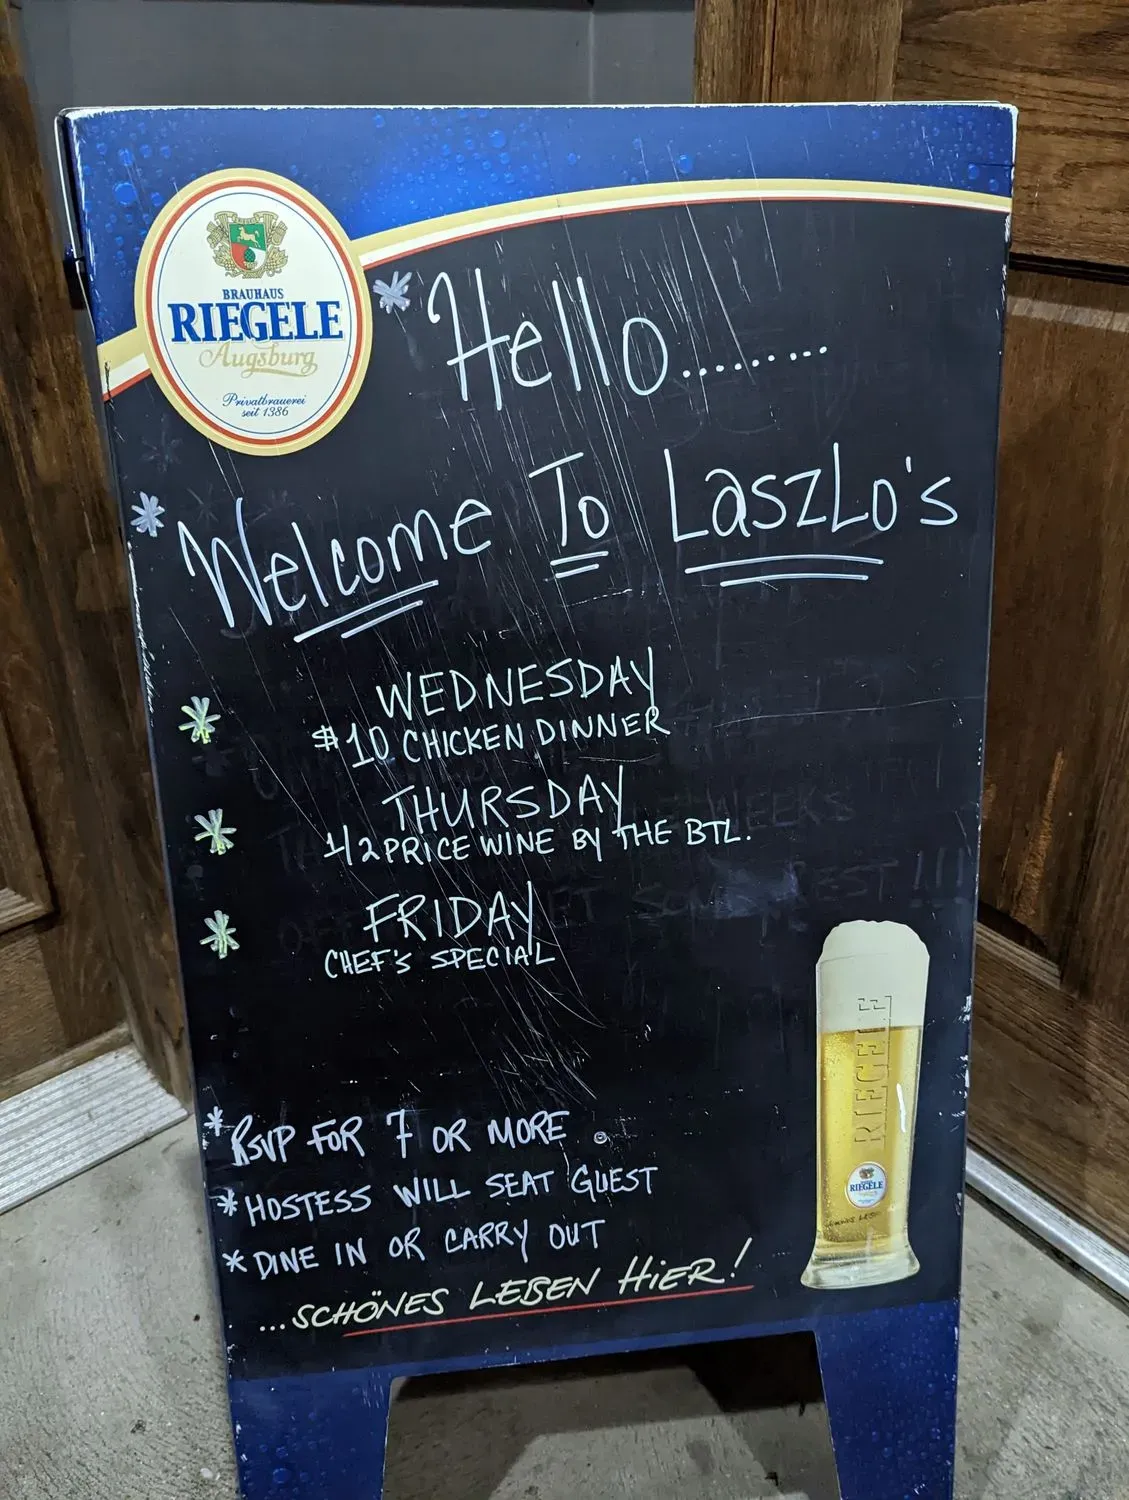 BRAUHAUS
RIEGELE
Augsburg
Privatbrauerei
seit 1386
*Hello........
*Welcome To LaszLo's
* WEDNESDAY
$10 CHICKEN DINNER
* THURSDAY
1/2 PRICE WINE BY THE BTL.
* FRIDAY
CHEF'S SPECIAL
*RSVP FOR 7 OR MORE
*HOSTESS WILL SEAT GUEST
*DINE IN OR CARRY OUT
...SCHÖNES LEBEN HiER!
RIEGELE
RIEGELE